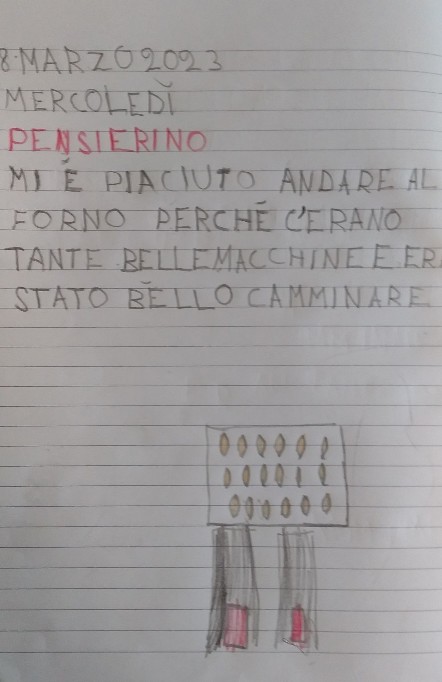 8·MARZO 2023
MERCOLEDÌ
PENSIERINO
MI È PIACIUTO ANDARE AL
FORNO PERCHÉ C'ERANO
TANTE BELLE MACCHINE E ERA
STATO BELLO CAMMINARE